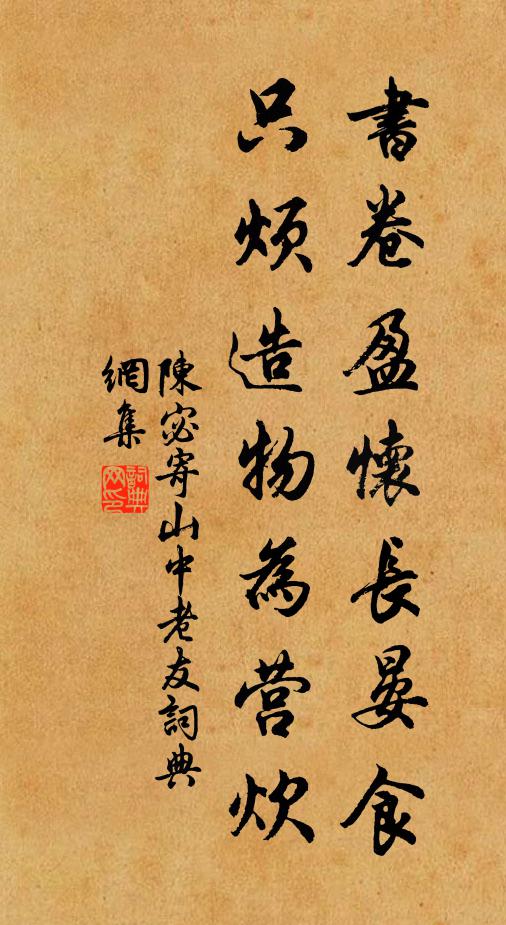 書卷盈懷長晏食
只煩造物為营炊
陳宓寄山中老友詞典
網集
詞典網印